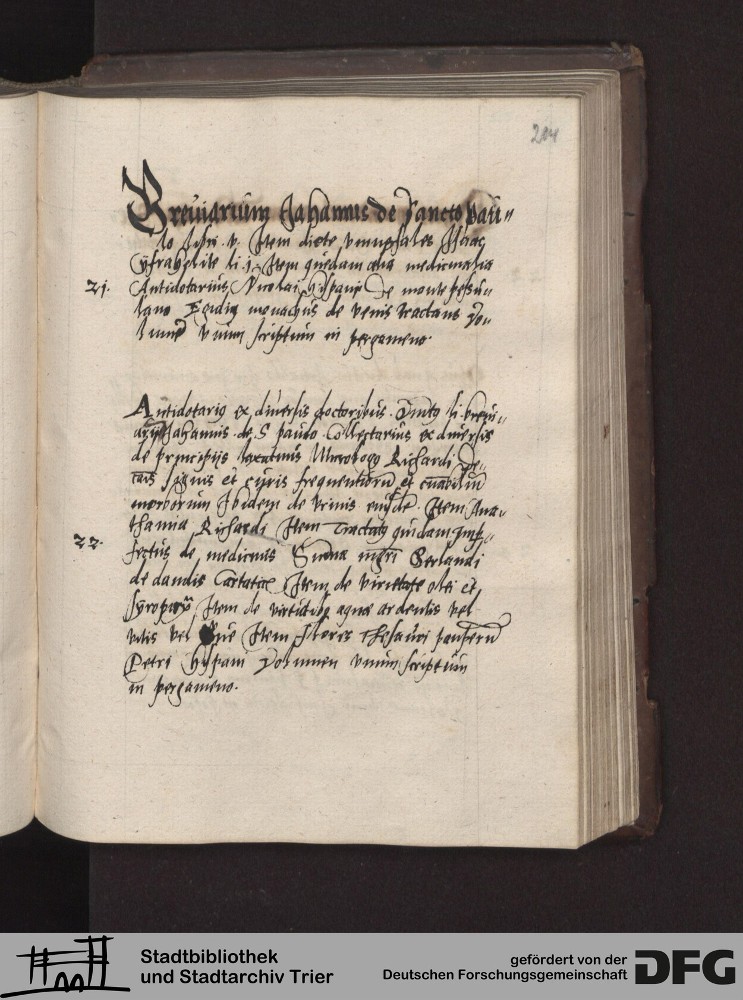 204
Breuiarium Johannis de Sancto pau„
lo libri . v . Item diete vniuersales Isaac
ysrahelite li j Item quedam alia medicinalia
21. Antidotarius Nicolai hyspani De monte pessu„
lano Egidij monachus de venis tractans Vo„
lumen vnum scriptum in pergameno.
Antidotario ex diuersis doctoribus . Quinto li breui„
arij Johannis . de . S paulo . Collectarius ex diuersis
de principijs Richardi De„
signis et curis frequentiorum et curabilium
morborum Ibidem de vrinis eiusdem . Item Ana„
thomia Richardi Item Tractatus quidam Imp„
22. fectus de medicinis Summa mgri Gerlandi
de dandis Catartic Item de virtutate olei et
syroporum Item de virtutibus aquae ardentis vel
vitis vel Item Flores thesauri pauperum
Petri hyspani Volumen vnum scriptum
in pergameno.
Stadtbibliothek
und Stadtarchiv Trier
gefördert von der
Deutschen Forschungsgemeinschaft
DFG